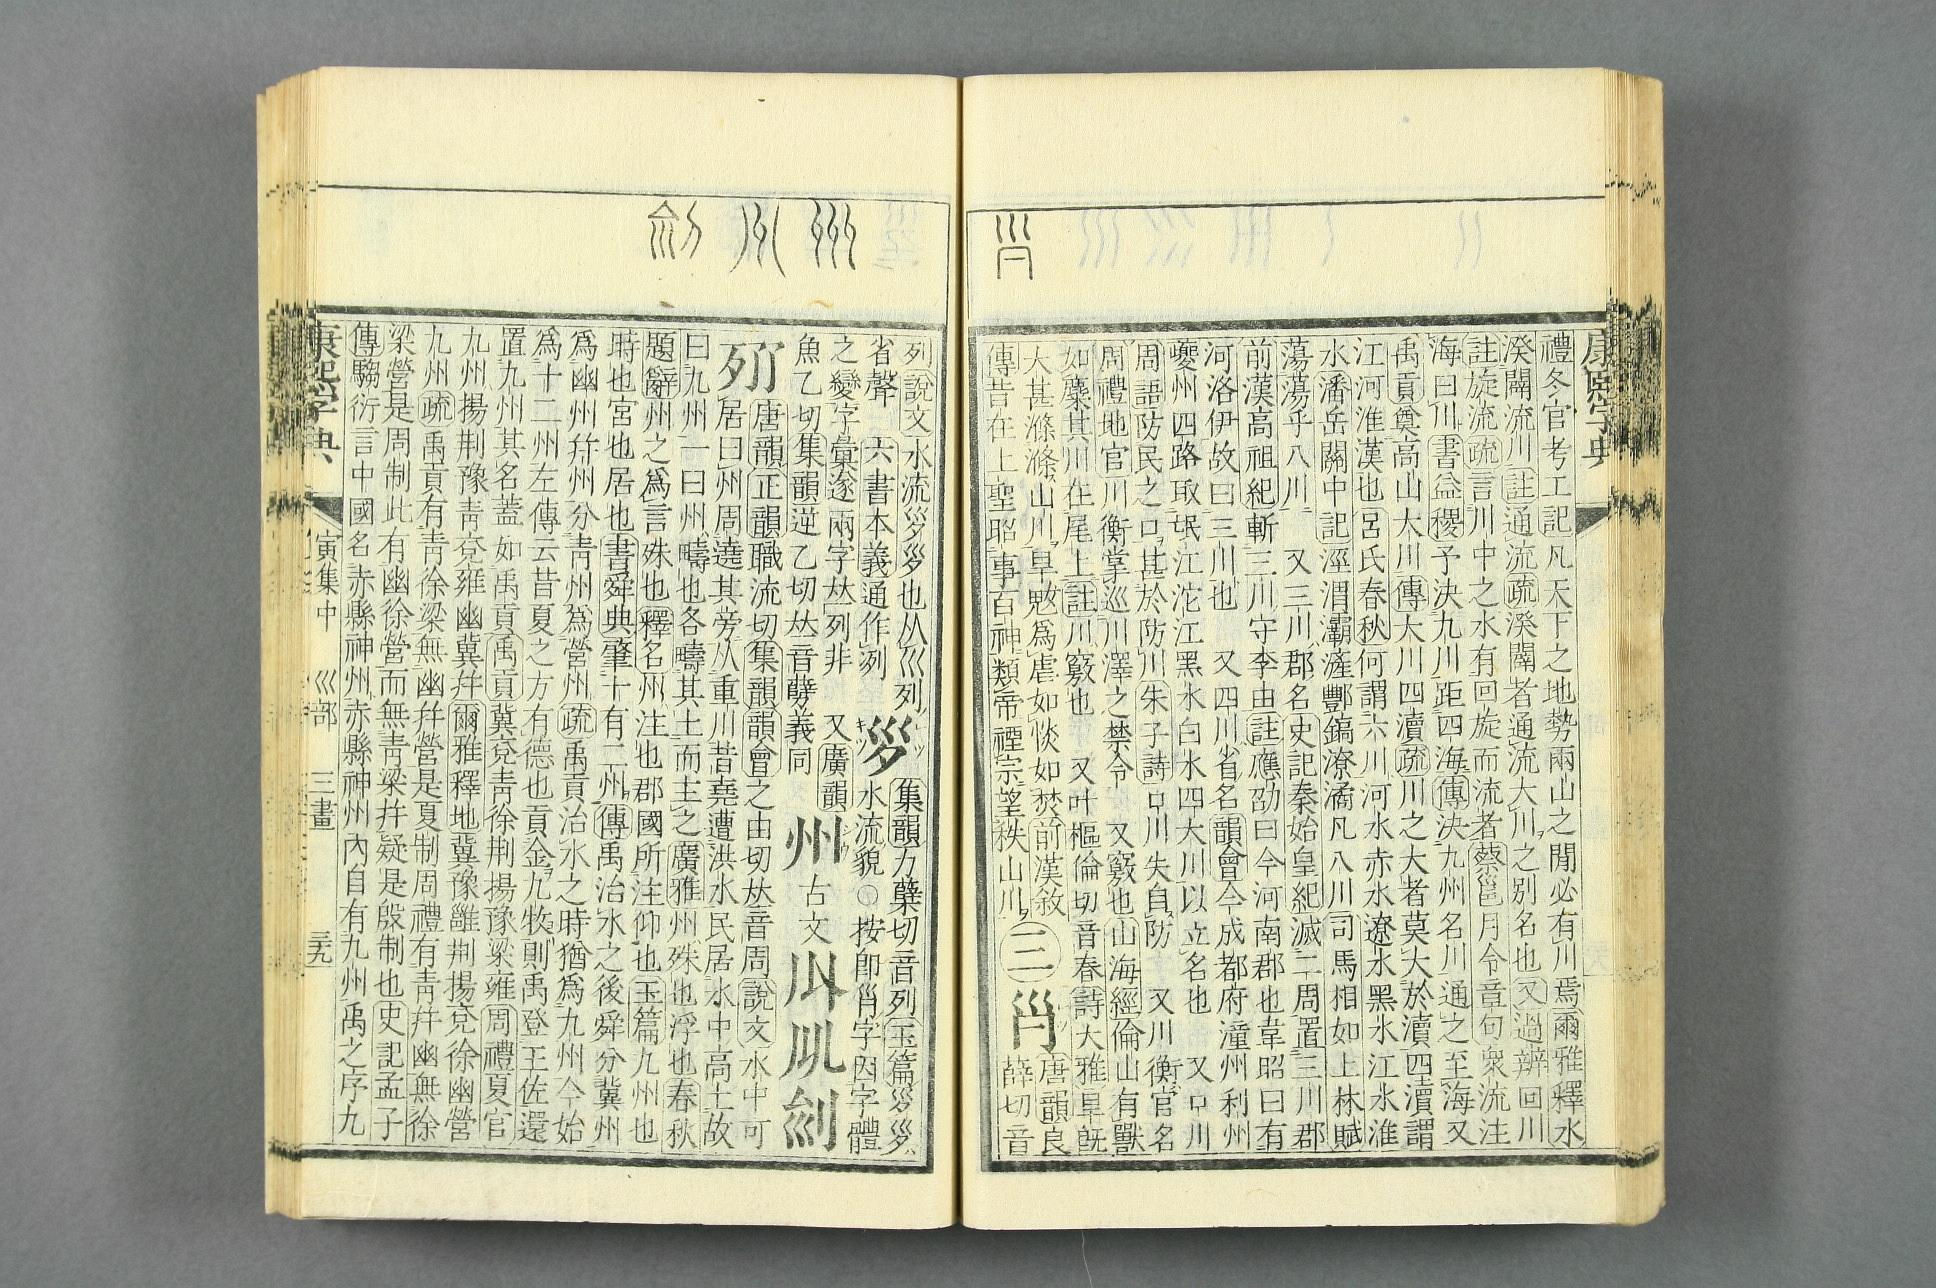 康熙字典
禮冬官考工記凡天下之地勢兩山之閒必有川焉爾雅釋水
湀闢流川註通流疏湀闢者通流大川之別名也又過辨回川
註旋流疏言川中之水有回旋而流者蔡邕月令章句衆流注
海曰川書益稷予決九川距四海傳決九州名川通之至海又
禹貢奠高山大川傳大川四瀆疏川之大者莫大於瀆四瀆謂
江河淮漢也呂氏春秋何謂六川河水赤水遼水黑水江水淮
水潘岳關中記涇渭灞滻酆鎬潦潏凡八川司馬相如上林賦
蕩蕩乎八川 又三川郡名史記秦始皇紀滅二周置三川郡
前漢高祖紀斬三川守李由註應劭曰今河南郡也韋昭曰有
河洛伊故曰三川也 又四川省名韻會今成都府潼州利州
夔州四路取岷江沱江黑水白水四大川以立名也 又口川
周語防民之口甚於防川朱子詩口川失自防 又川衡官名
周禮地官川衡掌巡川澤之禁令 又竅也山海經倫山有獸
如麋其川在尾上註川竅也 又叶樞倫切音春詩大雅旱旣
大甚滌滌山川旱魃爲虐如惔如焚前漢敘
傳昔在上聖昭事百神類帝禋宗望秩山川
三
𡿪
唐韻良
薛切音
列說文水流𡿪𡿪也从巛列
省聲 六書本義通作洌
𡿪
集韻力櫱切音列玉篇𡿪𡿪
水流貌○按卽𡿪字因字體
之變字彙遂兩字𠀤列非 又廣韻
魚乙切集韻逆乙切𠀤音孼義同
州
古文
唐韻正韻職流切集韻韻會之由切𠀤音周說文水中可
居曰州周遶其旁从重川昔堯遭洪水民居水中高土故
曰九州一曰州疇也各疇其土而主之廣雅州殊也浮也春秋
題辭州之爲言殊也釋名州注也郡國所注仰也玉篇九州也
時也宮也居也書舜典肇十有二州傳禹治水之後舜分冀州
爲幽州幷州分靑州爲營州疏禹貢治水之時猶爲九州今始
爲十二州左傳云昔夏之方有德也貢金九牧則禹登王佐還
置九州其名蓋如禹貢禹貢冀兗靑徐荆揚豫梁雍周禮夏官
九州揚荆豫靑兗雍幽冀幷爾雅釋地冀豫雝荆揚兗徐幽營
九州疏禹貢有靑徐梁無幽幷營是夏制周禮有靑幷幽無徐
梁營是周制此有幽徐營而無靑梁幷疑是殷制也史記孟子
傳騶衍言中國名赤縣神州赤縣神州內自有九州禹之序九
康熙字典
寅集中 巛部 三畫
三九